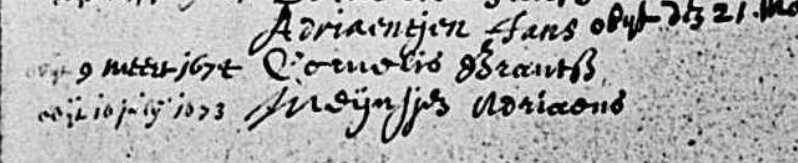 Adriaentjen Hans obijt. dez 21. Ma
9 meert 1674 Cornelis Brants
obijt 10 julij 1673 Meijnsjen Adriaens